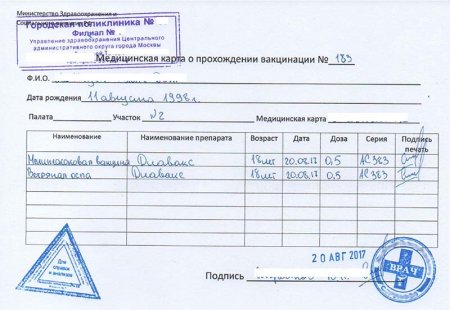 Министерство Здравоохранения и
Городская поликлиника №
Филиал №
Управление здравоохранения Центрального
административного округа города Москвы
Медицинская карта о прохождении вакцинации № 183
Ф.И.О.
Дата рождения 11 августа 1998 г.
Палата Участок №2 Медицинская карта
Наименование Наименование препарата Возраст Дата Доза Серия Подпись печать
вакцина Диавакс 18 лет 20.08.17 0,5 АС383
Ветряная оспа Диавакс 18 лет 20.08.17 0,5 АС383
Для справок и анализов
20 АВГ 2017
Подпись
ВРАЧ